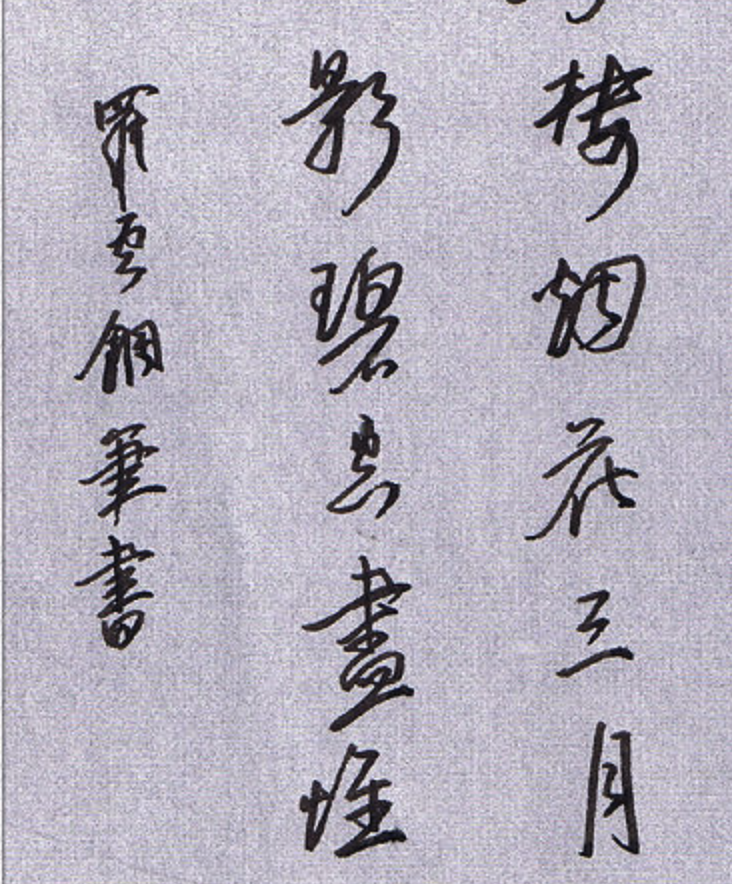 樓烟花三月
影碧空盡惟
鋼筆書